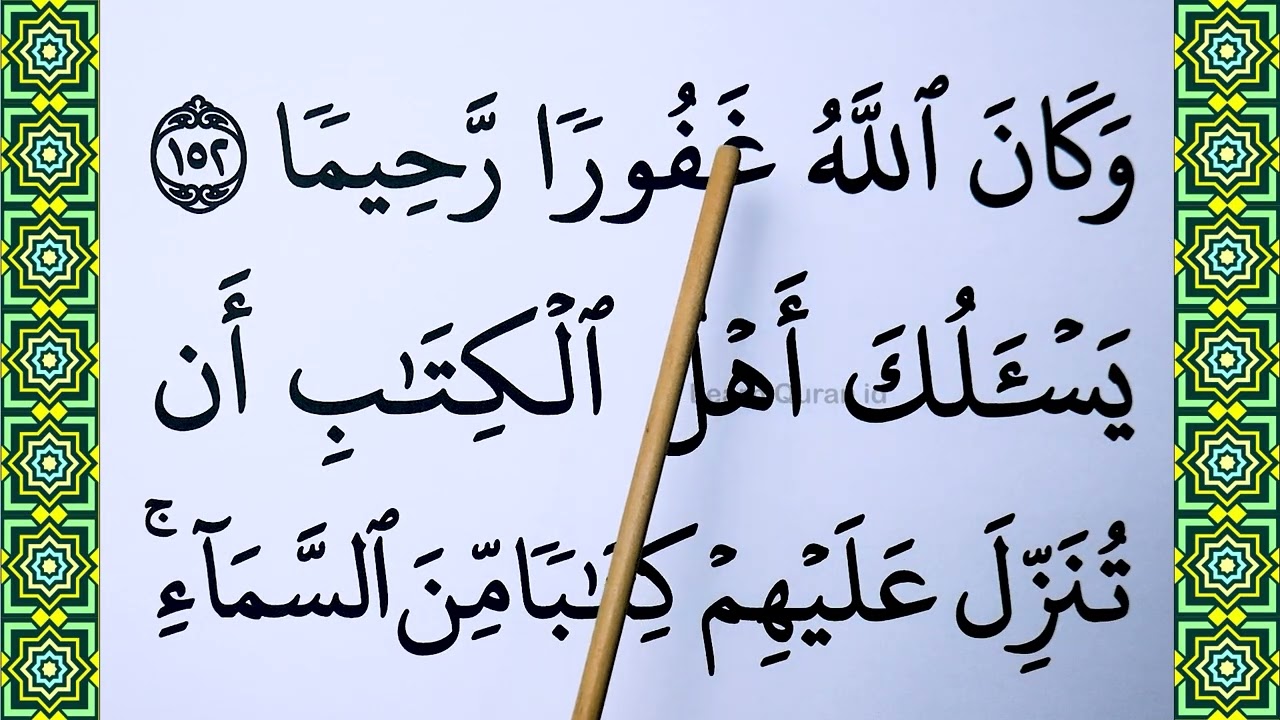 وَكَانَ ٱللَّهُ غَفُورَا رَّحِيمَا ١٥٢
يَسْـَٔلُكَ أَهْلُ ٱلْكِتَٰبِ أَن
تُنَزِّلَ عَلَيْهِمْ كِتَٰبَا مِّنَ ٱلسَّمَآءِ ۚ
Learn Quran id